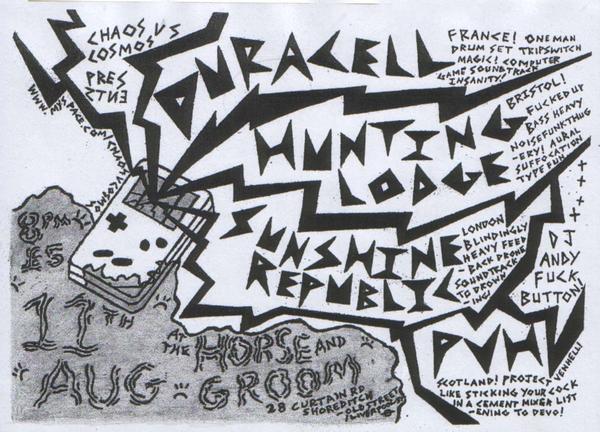 CHAOS VS
COSMOS
PRES
ENTS
WWW.
MYSPACE.COM/
DURACELL
FRANCE! ONE MAN
DRUM SET TRIPSWITCH
MAGIC! COMPUTER
GAME SOUNDTRACK
INSANITY!
HUNTING
LODGE
BRISTOL!
FUCKED UP
BASS HEAVY
NOISEFUNKTHUG
-ERY! AURAL
SUFFOCATION
TYPE FUN
SUNSHINE
REPUBLIC
LONDON
BLINDINGLY
HEAVY FEED
-BACK DRONE
SOUNDTRACK
TO DROWN
-ING!
DJ
ANDY
FUCK
BUTTON!
PVH
VENHELL!
SCOTLAND! PROJECT
LIKE STICKING YOUR COCK
IN A CEMENT MIXER LIST
-ENING TO DEVO!
8PM
£5
11TH
AUG-
AT
THE
HORSE AND
GROOM
28 CURTAIN RD
SHOREDITCH
OLD STREET